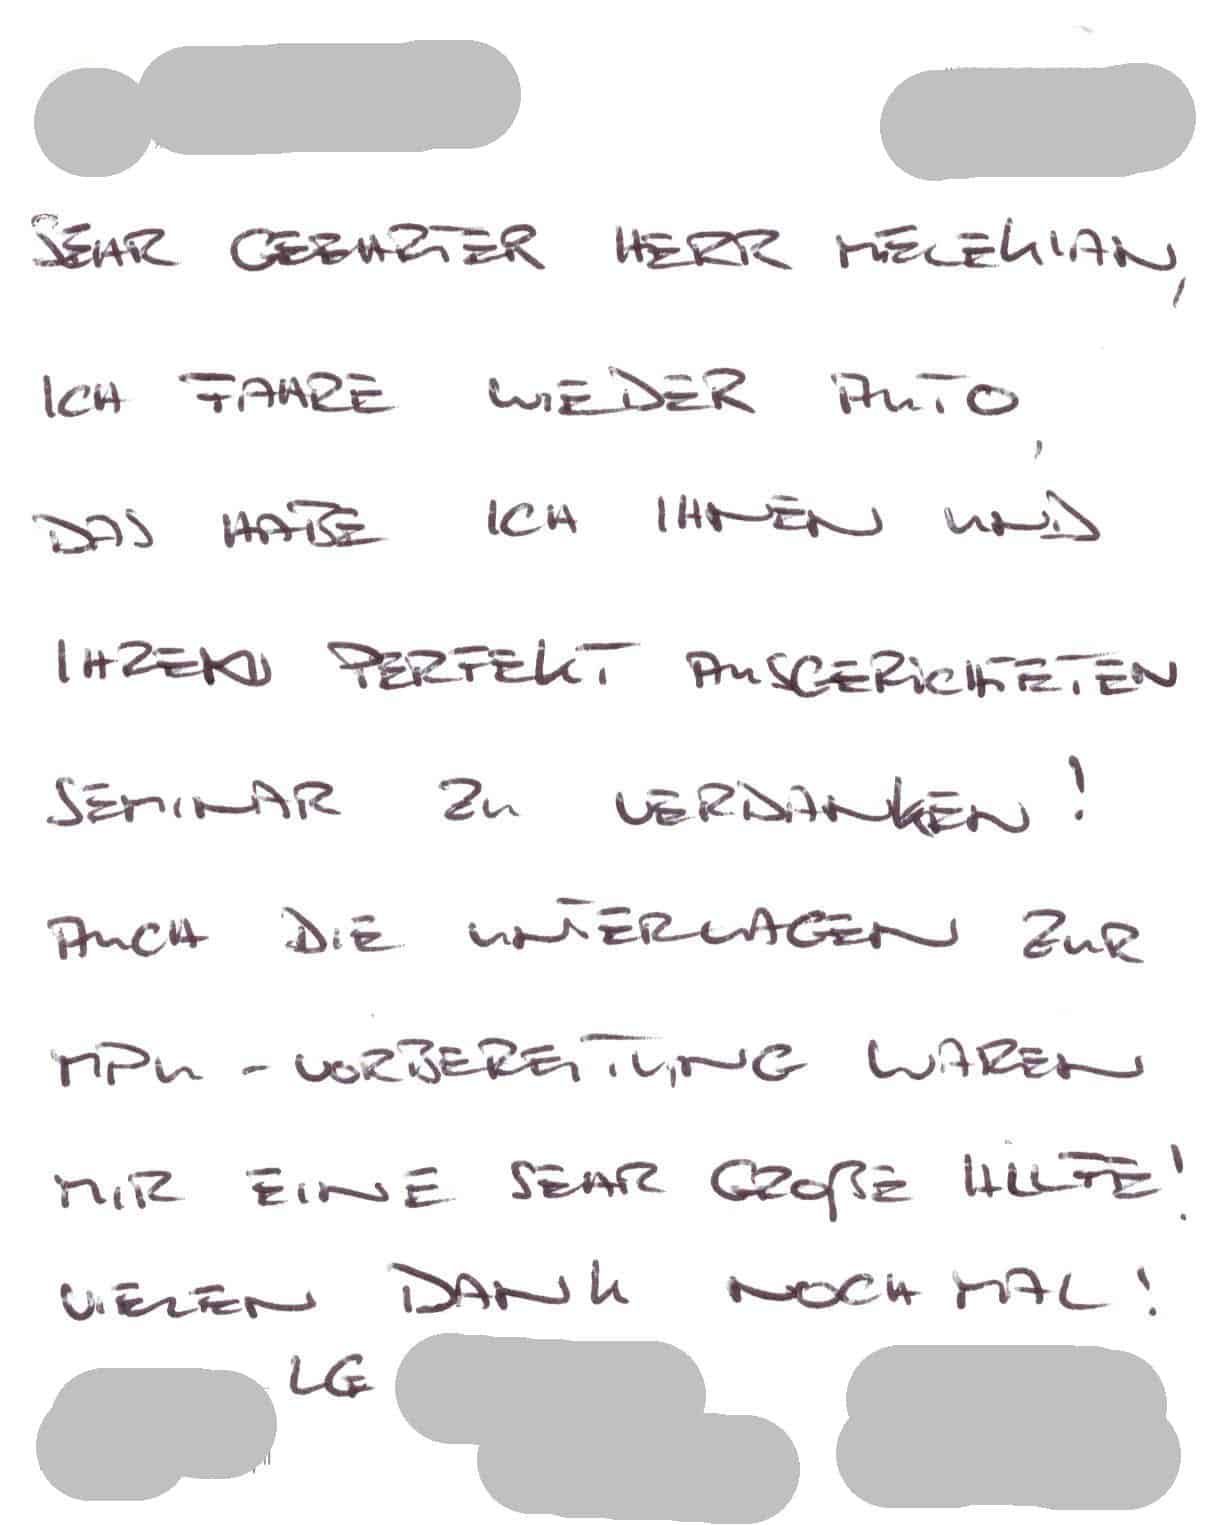 SEHR GEEHRTER HERR MELEKIAN,
ICH FAHRE WIEDER AUTO,
DAS HABE ICH IHNEN UND
IHREM PERFEKT AUSGERICHTETEN
SEMINAR ZU VERDANKEN!
AUCH DIE UNTERLAGEN ZUR
MPU - VORBEREITUNG WAREN
MIR EINE SEHR GROßE HILFE!
VIELEN DANK NOCH MAL!
LG